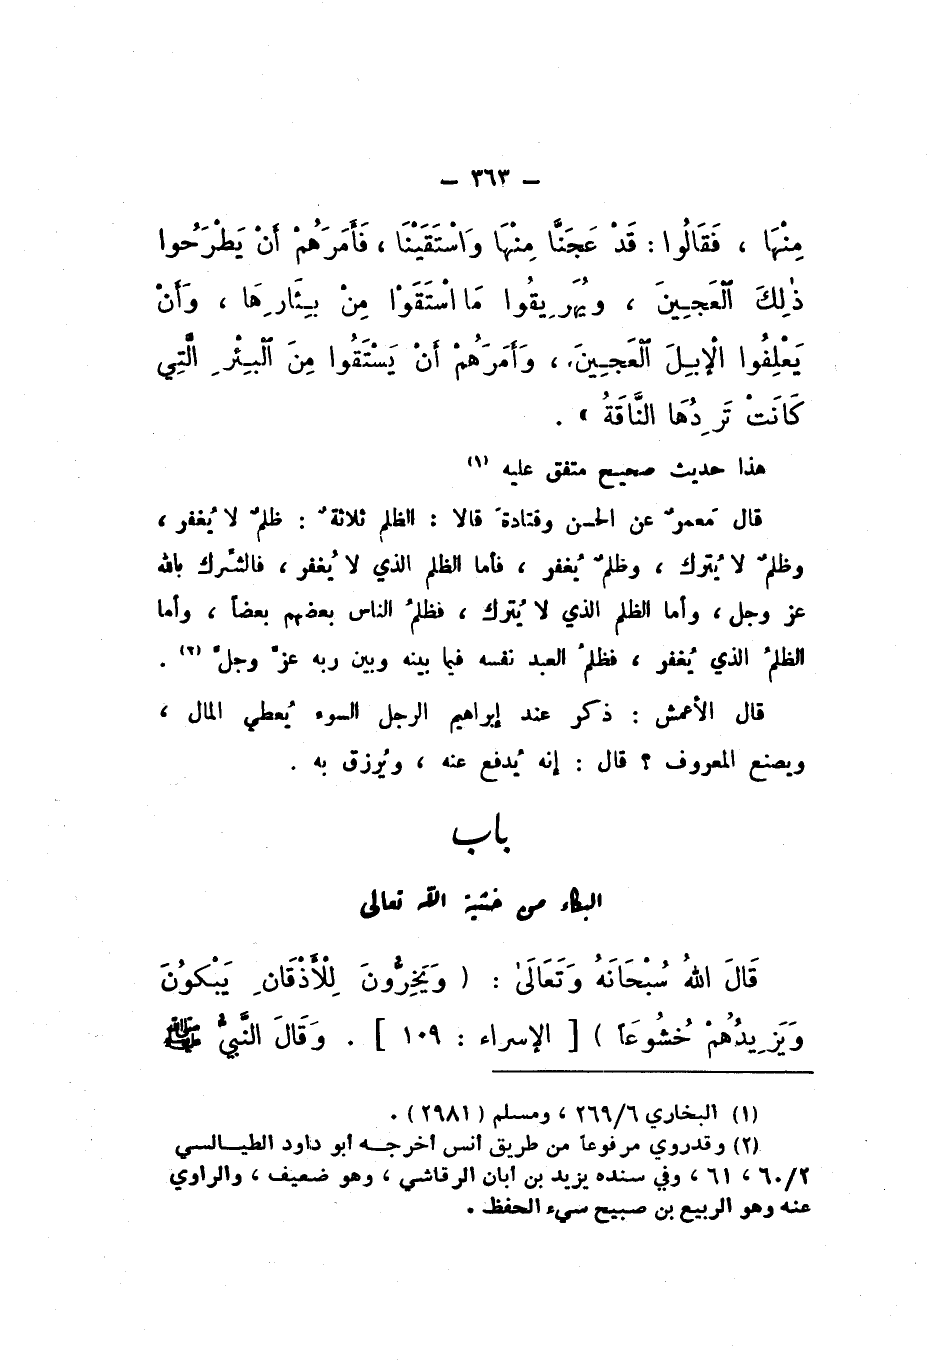 – ٣٦٣ –
مِنْهَا ، فَقَالُوا : قَدْ عَجَنَّا مِنْهَا وَاسْتَقَيْنَا ، فَأَمَرَهُمْ أَنْ يَطْرَحُوا
ذٰلِكَ ٱلْعَجِينَ ، ويُهَرِيقُوا مَا اسْتَقَوْا مِنْ بِئَارِهَا ، وَأَنْ
يَعْلِفُوا الْإِبِلَ ٱلْعَجِينَ ، وَأَمَرَهُمْ أَنْ يَسْتَقُوا مِنَ ٱلْبِئْرِ الَّتِي
كَانَتْ تَرِدُهَا النَّاقَةُ » .
هذا حديث صحيح متفق عليه (١)
قال مَعمرٌ عن الحسن وقتادةَ قالا : الظلم ثلاثةٌ : ظلمٌ لا يُغفر ،
وظلمٌ لا يُترك ، وظلمٌ يُغفر ، فأما الظلم الذي لا يُغفر ، فالشّرك بالله
عز وجل ، وأما الظلم الذي لا يُترك ، فظلمُ الناس بعضهم بعضاً ، وأما
الظلمُ الذي يُغفر ، فظلمُ العبد نفسه فيما بينه وبين ربه عزّ وجلّ (٢) .
قال الأعمش : ذكر عند إبراهيم الرجل السوء يُعطي المال ،
ويصنع المعروف ؟ قال : إنه يُدفع عنه ، ويُرزق به .
باب
البكاء من خشية الله تعالى
قَالَ اللهُ سُبْحَانَهُ وَتَعَالَىٰ : ( وَيَخِرُّونَ لِلْأَذْقَانِ يَبْكُونَ
وَيَزِيدُهُمْ خُشُوعَاً ) [ الإسراء : ١٠٩ ] . وَقَالَ النَّبِيُّ ﷺ
(١) البخاري ٢٦٩/٦ ، ومسلم ( ٢٩٨١ ) .
(٢) وقدروي مرفوعاً من طريق أنس أخرجه أبو داود الطيالسي
٦٠/٢ ، ٦١ ، وفي سنده يزيد بن أبان الرقاشي ، وهو ضعيف ، والراوي
عنه وهو الربيع بن صبيح سيء الحفظ .